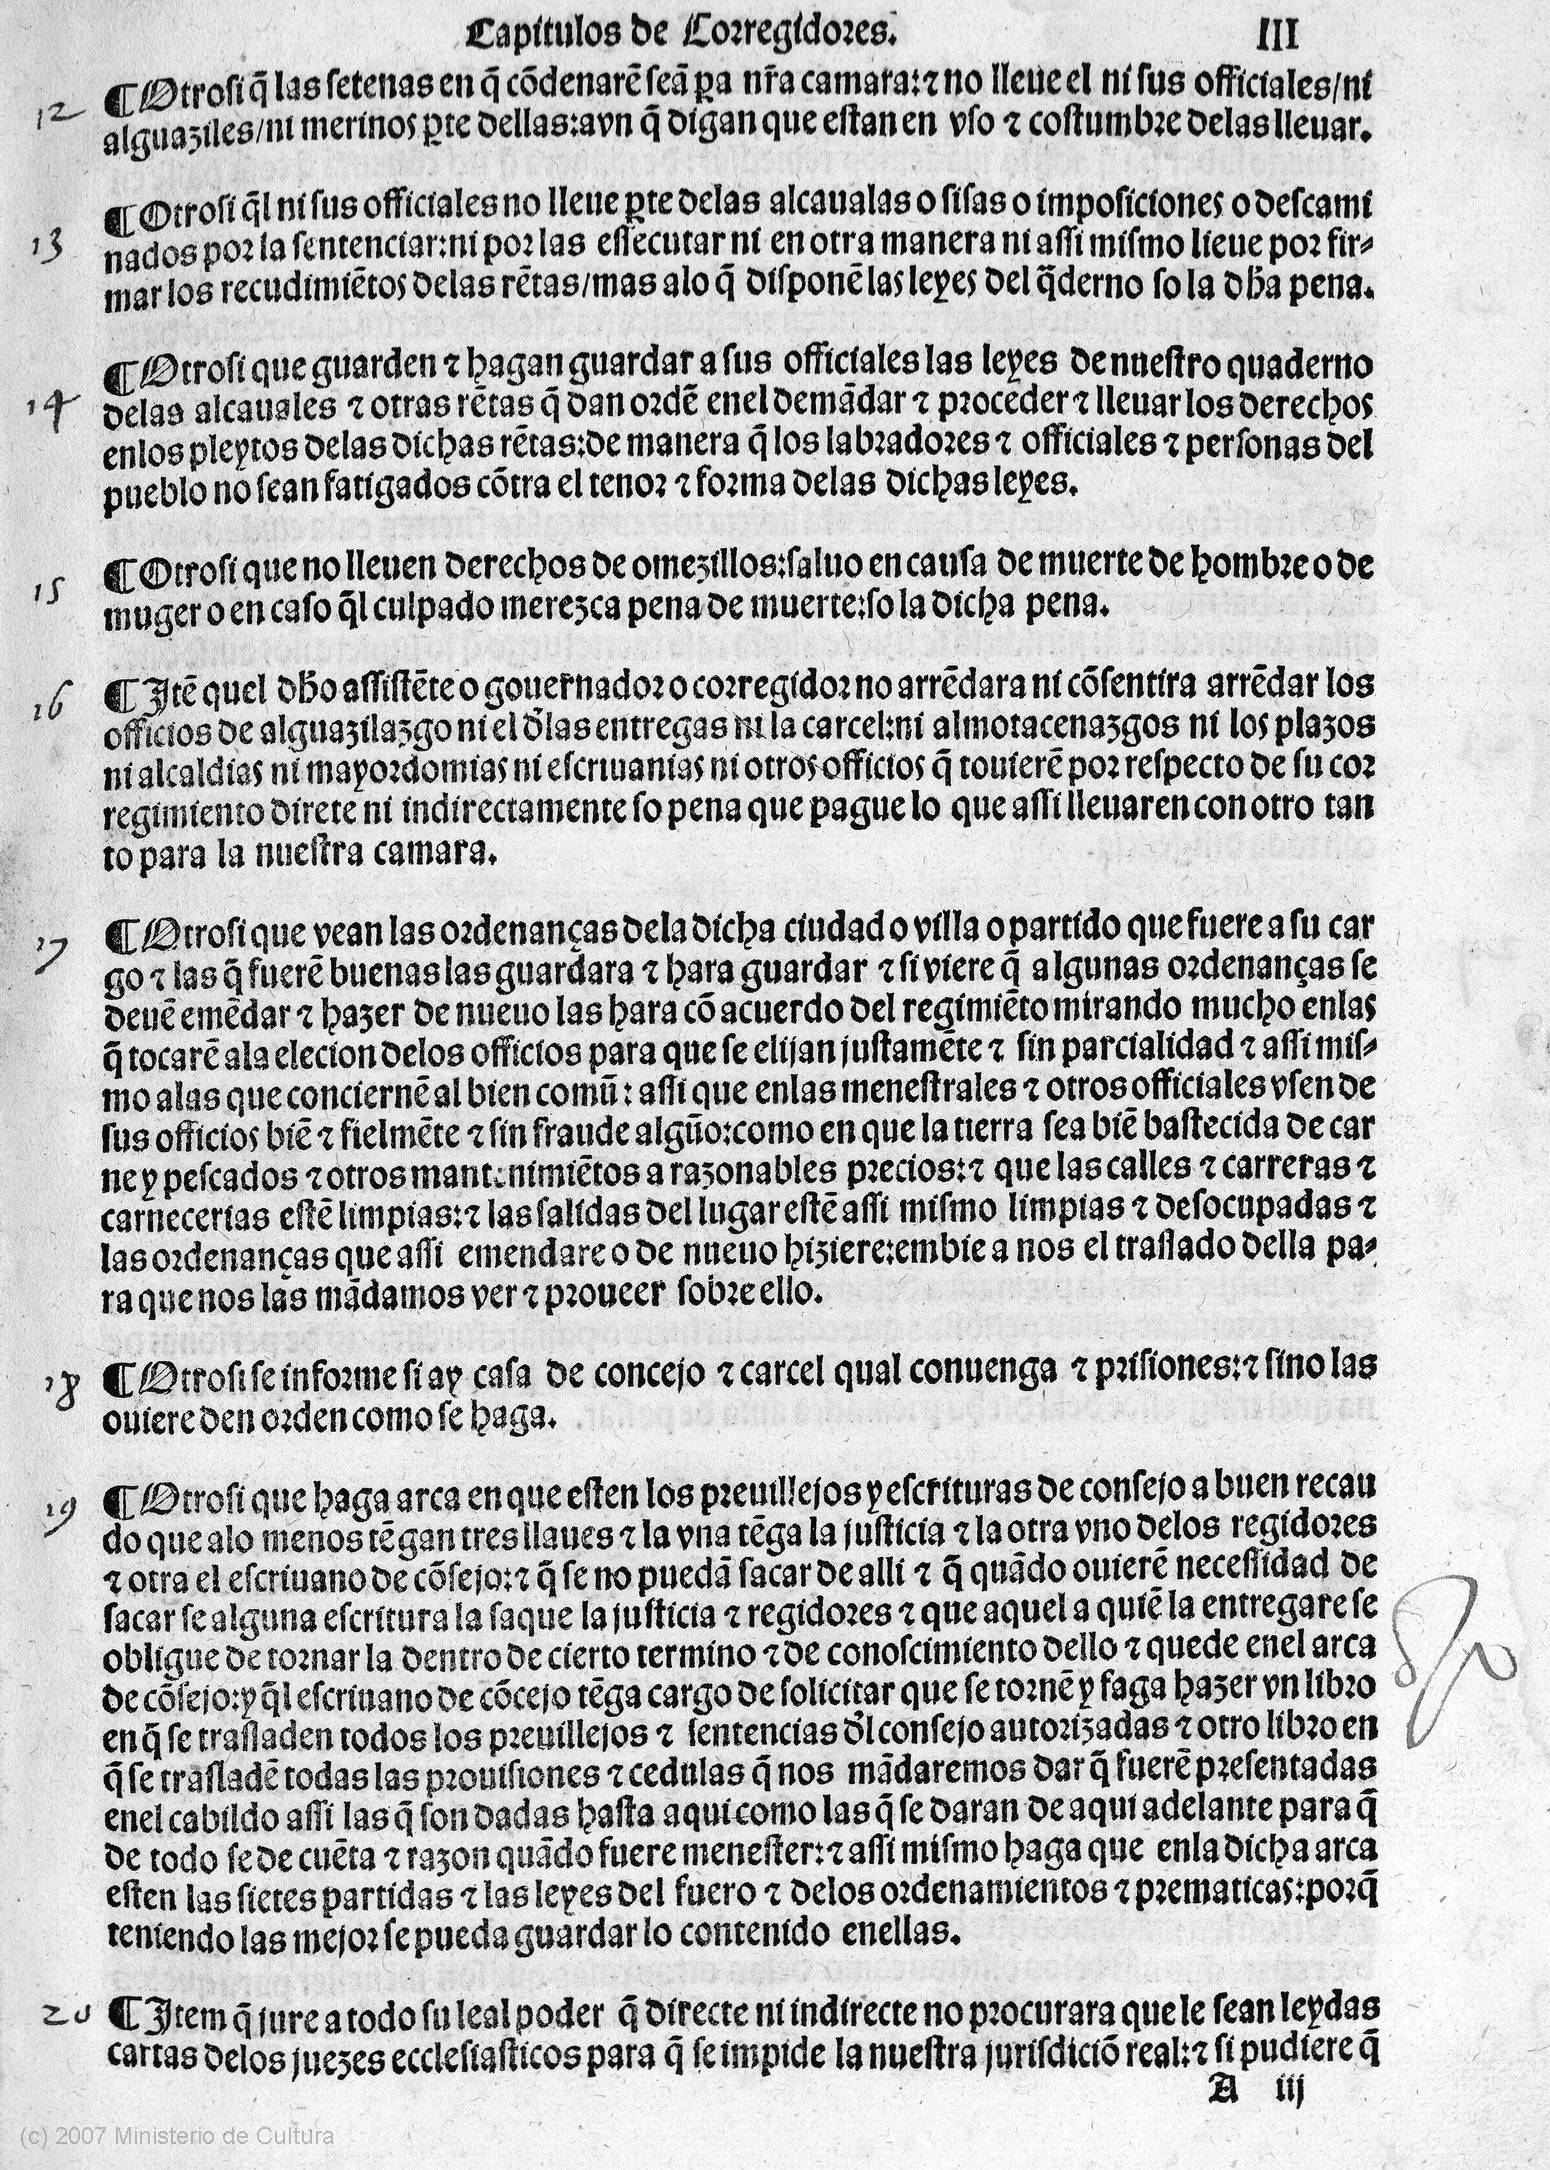 Capitulos de Corregidores. III
12 ¶ Otrosi q̃ las setenas en q̃ cõdenarẽ seã ꝑa nr̃a camara: ⁊ no lleue el ni sus officiales/ni
alguaziles/ni merinos ꝑte dellas: avn q̃ digan que estan en vso ⁊ costumbre delas lleuar.
13 ¶ Otrosi q̃l ni sus officiales no lleue ꝑte delas alcaualas o sisas o imposiciones o descami
nados por la sentenciar: ni por las essecutar ni en otra manera ni assi mismo lieue por fir-
mar los recudimiẽtos delas rẽtas/mas alo q̃ disponẽ las leyes del q̃derno so la dh̃a pena.
14 ¶ Otrosi que guarden ⁊ hagan guardar a sus officiales las leyes de nuestro quaderno
delas alcauales ⁊ otras rẽtas q̃ dan ordẽ enel demãdar ⁊ proceder ⁊ lleuar los derechos
enlos pleytos delas dichas rẽtas: de manera q̃ los labradores ⁊ officiales ⁊ personas del
pueblo no sean fatigados cõtra el tenor ⁊ forma delas dichas leyes.
15 ¶ Otrosi que no lleuen derechos de omezillos: saluo en causa de muerte de hombre o de
muger o en caso q̃l culpado merezca pena de muerte: so la dicha pena.
16 ¶ Itẽ quel dh̃o assistẽte o gouernador o corregidor no arrẽdara ni cõsentira arrẽdar los
officios de alguazilazgo ni el d̃las entregas ni la carcel: ni almotacenazgos ni los plazos
ni alcaldias ni mayordomias ni escriuanias ni otros officios q̃ touierẽ por respecto de su cor
regimiento direte ni indirectamente so pena que pague lo que assi lleuaren con otro tan
to para la nuestra camara.
17 ¶ Otrosi que vean las ordenanças dela dicha ciudad o villa o partido que fuere a su car
go ⁊ las q̃ fuerẽ buenas las guardara ⁊ hara guardar ⁊ si viere q̃ algunas ordenanças se
deuẽ emẽdar ⁊ hazer de nueuo las hara cõ acuerdo del regimiẽto mirando mucho enlas
q̃ tocarẽ ala elecion delos officios para que se elijan justamẽte ⁊ sin parcialidad ⁊ assi mis-
mo alas que conciernẽ al bien comũ: assi que enlas menestrales ⁊ otros officiales vsen de
sus officios biẽ ⁊ fielmẽte ⁊ sin fraude algũo: como en que la tierra sea biẽ bastecida de car
ne y pescados ⁊ otros mantenimiẽtos a razonables precios: ⁊ que las calles ⁊ carreras ⁊
carnecerias estẽ limpias: ⁊ las salidas del lugar estẽ assi mismo limpias ⁊ desocupadas ⁊
las ordenanças que assi emendare o de nueuo hiziere: embie a nos el traslado della pa-
ra que nos las mãdamos ver ⁊ proueer sobre ello.
18 ¶ Otrosi se informe si ay casa de concejo ⁊ carcel qual conuenga ⁊ prisiones: ⁊ sino las
ouiere den orden como se haga.
19 ¶ Otrosi que haga arca en que esten los preuillejos y escrituras de consejo a buen recau
do que alo menos tẽgan tres llaues ⁊ la vna tẽga la justicia ⁊ la otra vno delos regidores
⁊ otra el escriuano de cõsejo: ⁊ q̃ se no puedã sacar de alli ⁊ q̃ quãdo ouierẽ necessidad de
sacar se alguna escritura la saque la justicia ⁊ regidores ⁊ que aquel a quiẽ la entregare se
obligue de tornar la dentro de cierto termino ⁊ de conoscimiento dello ⁊ quede enel arca
de cõsejo: y q̃l escriuano de cõcejo tẽga cargo de solicitar que se tornẽ y faga hazer vn libro
en q̃ se trasladen todos los preuillejos ⁊ sentencias d̃l consejo autorizadas ⁊ otro libro en
q̃ se trasladẽ todas las prouisiones ⁊ cedulas q̃ nos mãdaremos dar q̃ fuerẽ presentadas
enel cabildo assi las q̃ son dadas hasta aqui como las q̃ se daran de aqui adelante para q̃
de todo se de cuẽta ⁊ razon quãdo fuere menester: ⁊ assi mismo haga que enla dicha arca
esten las sietes partidas ⁊ las leyes del fuero ⁊ delos ordenamientos ⁊ prematicas: porq̃
teniendo las mejor se pueda guardar lo contenido enellas.
20 ¶ Item q̃ jure a todo su leal poder q̃ directe ni indirecte no procurara que le sean leydas
cartas delos juezes ecclesiasticos para q̃ se impide la nuestra jurisdiciõ real: ⁊ si pudiere q̃
A iij
(c) 2007 Ministerio de Cultura